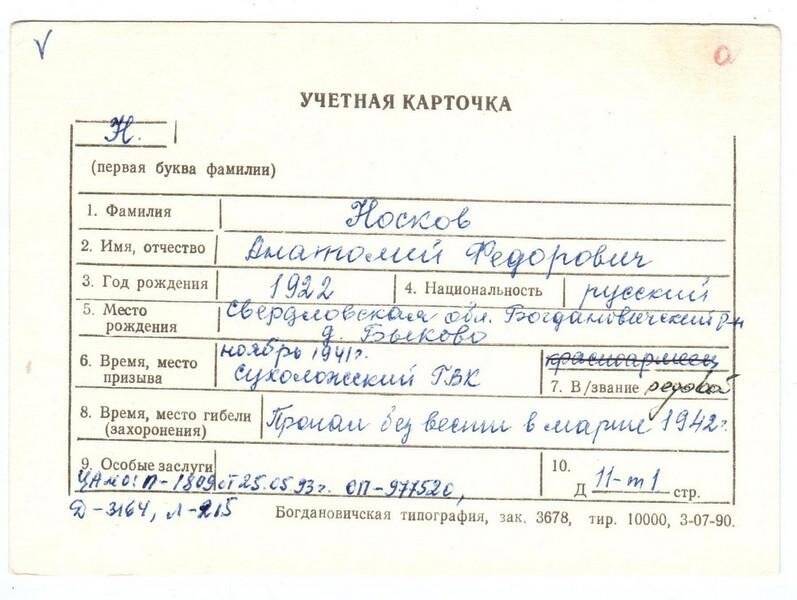 V
О
УЧЕТНАЯ КАРТОЧКА
Н.
(первая буква фамилии)
1. Фамилия Носков
2. Имя, отчество Анатолий Федорович
3. Год рождения 1922 4. Национальность русский
5. Место рождения Свердловская обл. Богдановичский р-н
д. Быково
6. Время, место призыва ноябрь 1941г.
Сухоложский ГВК
красноармеец
7. В/звание рядовой
8. Время, место гибели (захоронения) Пропал без вести в марте 1942г.
9. Особые заслуги
ЦАМО: П-1809 от 25.05.93г. ОП-977520,
Д-3164, Л-215
10.
Д 11-т1 стр.
Богдановичская типография, зак. 3678, тир. 10000, 3-07-90.